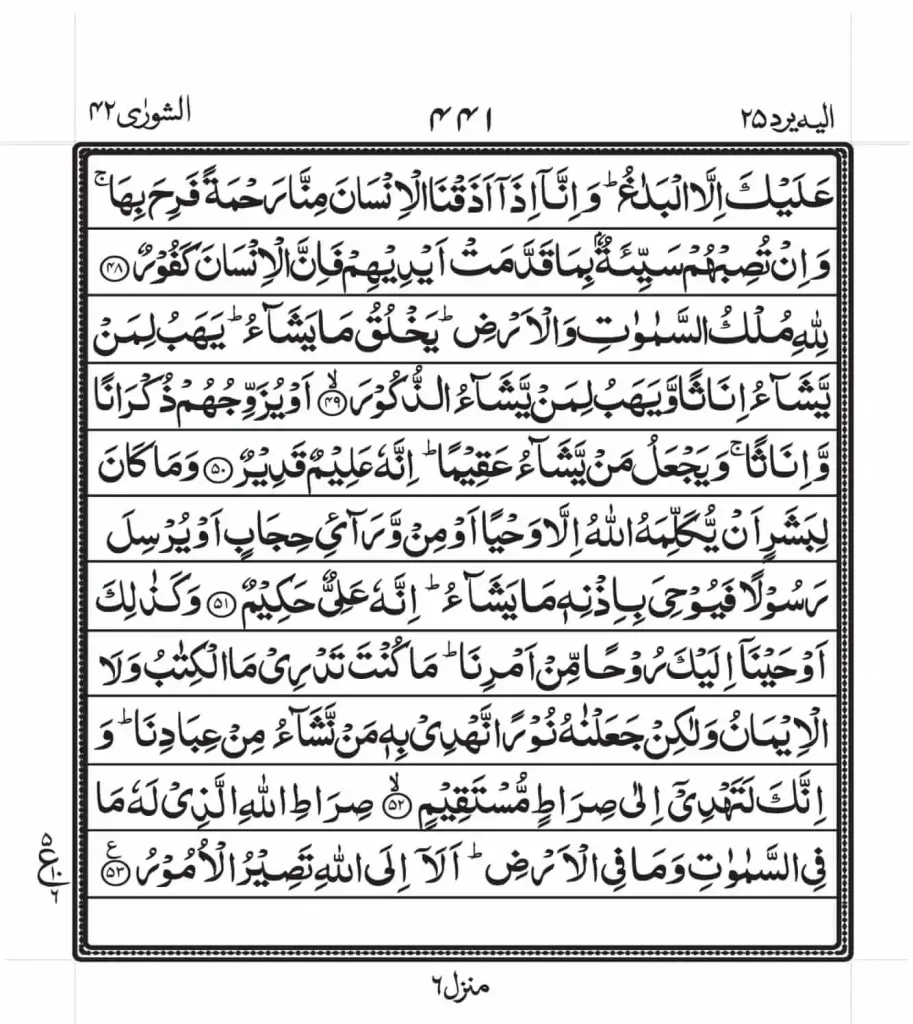 الیه یرد ۲۵ ۴۴۱ الشورٰی ۴۲
عَلَیْكَ اِلَّا الْبَلٰغُ ؕ وَ اِنَّاۤ اِذَاۤ اَذَقْنَا الْاِنْسَانَ مِنَّا رَحْمَةً فَرِحَ بِهَا ۚ
وَ اِنْ تُصِبْهُمْ سَیِّئَةٌۢ بِمَا قَدَّمَتْ اَیْدِیْهِمْ فَاِنَّ الْاِنْسَانَ كَفُوْرٌ ﴿۴۸﴾
لِلّٰهِ مُلْكُ السَّمٰوٰتِ وَ الْاَرْضِ ؕ یَخْلُقُ مَا یَشَآءُ ؕ یَهَبُ لِمَنْ
یَّشَآءُ اِنَاثًا وَّ یَهَبُ لِمَنْ یَّشَآءُ الذُّكُوْرَ ﴿ۙ۴۹﴾ اَوْ یُزَوِّجُهُمْ ذُكْرَانًا
وَّ اِنَاثًا ۚ وَ یَجْعَلُ مَنْ یَّشَآءُ عَقِیْمًا ؕ اِنَّهٗ عَلِیْمٌ قَدِیْرٌ ﴿۵۰﴾ وَ مَا كَانَ
لِبَشَرٍ اَنْ یُّكَلِّمَهُ اللّٰهُ اِلَّا وَحْیًا اَوْ مِنْ وَّرَآئِ حِجَابٍ اَوْ یُرْسِلَ
رَسُوْلًا فَیُوْحِیَ بِاِذْنِهٖ مَا یَشَآءُ ؕ اِنَّهٗ عَلِیٌّ حَكِیْمٌ ﴿۵۱﴾ وَ كَذٰلِكَ
اَوْحَیْنَاۤ اِلَیْكَ رُوْحًا مِّنْ اَمْرِنَا ؕ مَا كُنْتَ تَدْرِیْ مَا الْكِتٰبُ وَ لَا
الْاِیْمَانُ وَ لٰكِنْ جَعَلْنٰهُ نُوْرًا نَّهْدِیْ بِهٖ مَنْ نَّشَآءُ مِنْ عِبَادِنَا ؕ وَ
اِنَّكَ لَتَهْدِیْۤ اِلٰی صِرَاطٍ مُّسْتَقِیْمٍ ﴿ۙ۵۲﴾ صِرَاطِ اللّٰهِ الَّذِیْ لَهٗ مَا
فِی السَّمٰوٰتِ وَ مَا فِی الْاَرْضِ ؕ اَلَاۤ اِلَی اللّٰهِ تَصِیْرُ الْاُمُوْرُ ﴿۵۳﴾ ع
۵
ع ۱۰
۶
منزل ۶